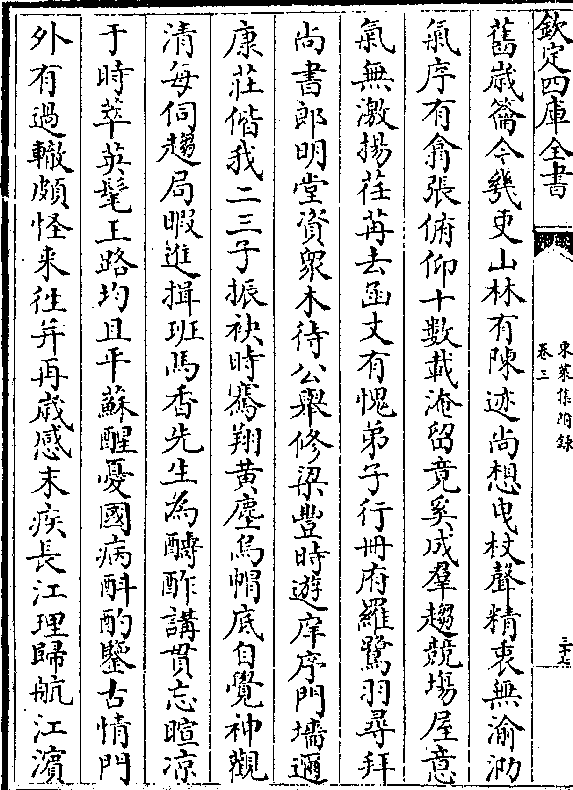 欽定四庫全書
東萊集附錄
卷三
三十七
舊歲籥今幾更山林有陳迹尚想曳杖聲精衷無渝泐
氣序有翕張俯仰十數載淹留竟奚成羣趨競塲屋意
氣無激揚荏苒去函丈有愧弟子行冊府羅鷺羽尋拜
尚書郎明堂資衆木待公舉修梁豐時遊庠序門墻邇
康莊偕我二三子振袂時騫翔黃塵烏帽底自覺神觀
清每伺趨局暇進揖班馬香先生為醻酢講貫忘暄凉
于時萃英髦王路均且平蘇醒憂國病斟酌鑒古情門
外有過轍頗怪来徃并再歲感末疾長江理歸航江濱